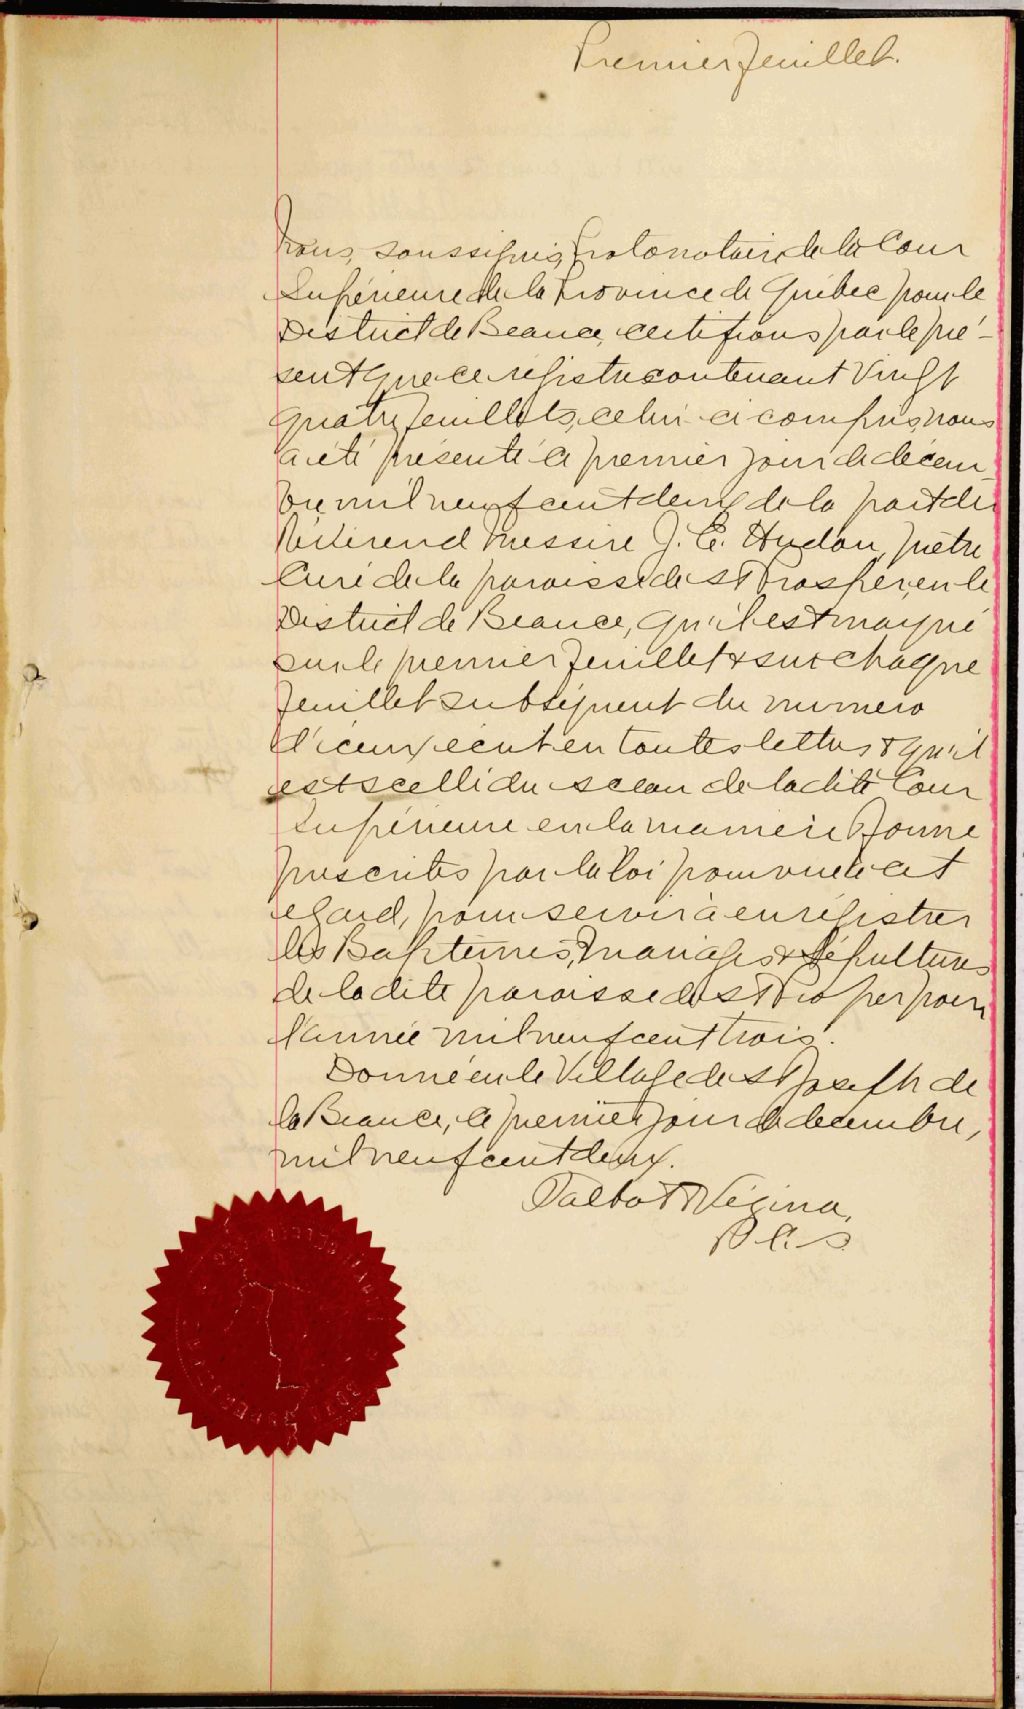 Premier feuillet.
Nous, soussignés, Protonotaire de la Cour
Supérieure de la Province de Québec pour le
District de Beauce, certifions par le pré-
sent que ce régistre contenant Vingt
quatre feuillets, celui-ci compris, nous
a été présenté ce premier jour de décem-
bre mil neuf cent deux de la part du
Révérend Messire J. E. Hudon, prêtre
Curé de la paroisse de St Prosper, en le
District de Beauce, qu'il est marqué
sur le premier feuillet & sur chaque
feuillet subséquent du numéro
d'iceux écrit en toutes lettres & qu'il
est scellé du sceau de la dite Cour
Supérieure en la manière & forme
prescrites par la loi pourvue à cet
égard, pour servir à enrégistrer
les Baptêmes, Mariages & Sépultures
de la dite paroisse de St Prosper pour
l'année mil neuf cent trois.
Donné en le Village de St Joseph de
la Beauce, ce premier jour de décembre,
mil neuf cent deux.
Talbot & Vézina,
P. C. S.